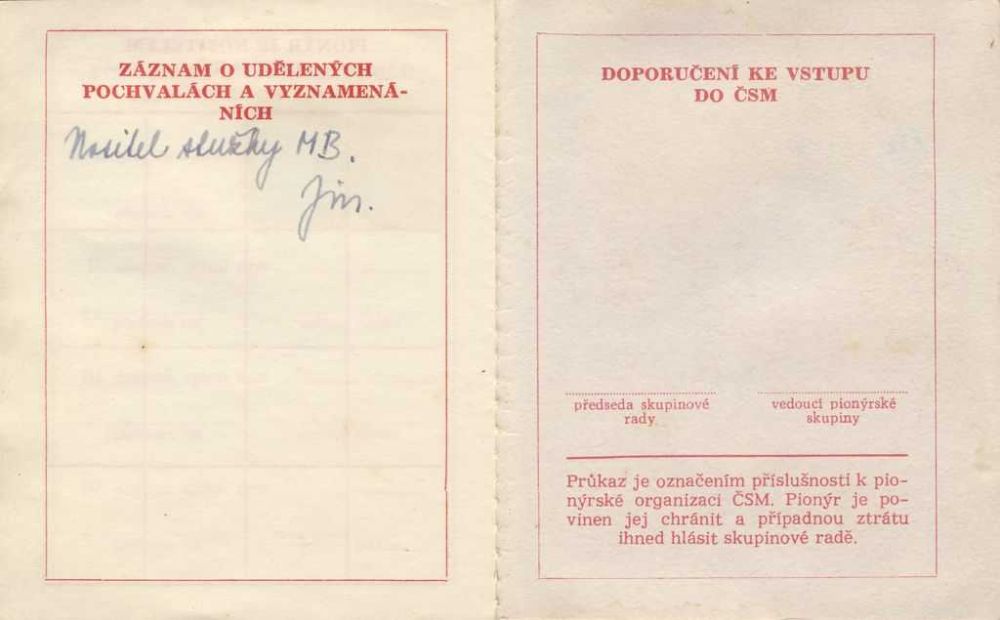 ZÁZNAM O UDĚLENÝCH
POCHVALÁCH A VYZNAMENÁ-
NÍCH
Nositel stužky MB.
DOPORUČENÍ KE VSTUPU
DO ČSM
předseda skupinové
rady
vedoucí pionýrské
skupiny
Průkaz je označením příslušnosti k pio-
nýrské organizaci ČSM. Pionýr je po-
vinen jej chránit a případnou ztrátu
ihned hlásit skupinové radě.